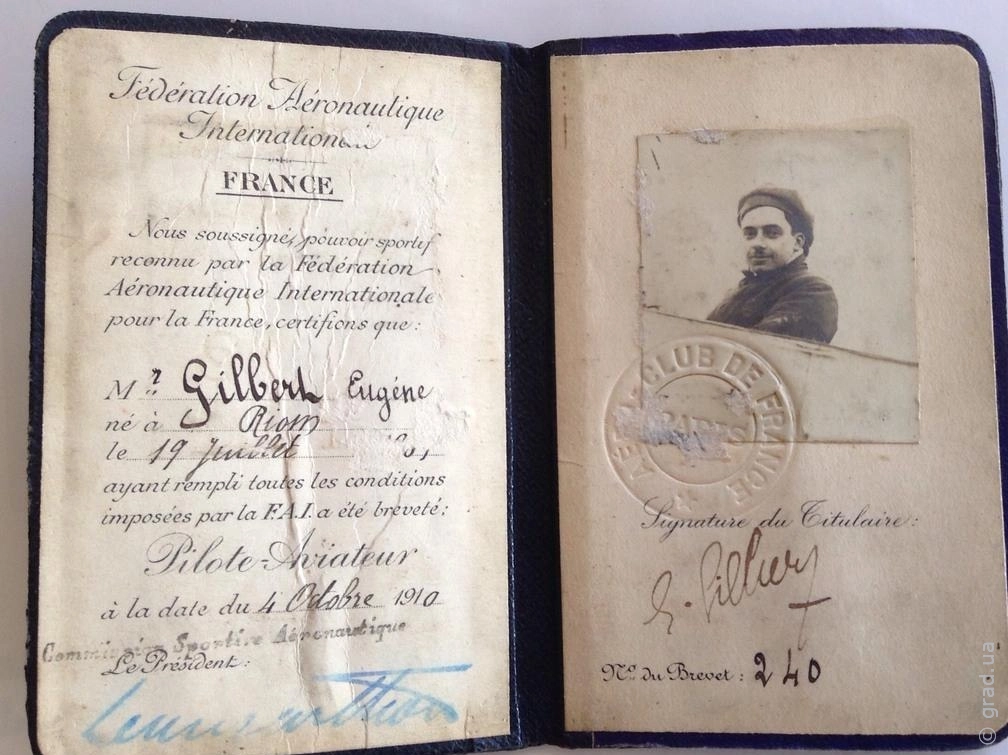 Fédération Aéronautique
FRANCE
Nous soussigné, pouvoir sportif
reconnu par la Fédération
Aéronautique Internationale
pour la France, certifions que:
Mr Gilbert Eugène
né à Riom
le 19 Juillet
ayant rempli toutes les conditions
imposées par la F.A.I. a été breveté:
Pilote-Aviateur
à la date du 4 Octobre 1910
Commission Sportive Aéronautique
Le Président:
AÉRO-CLUB DE FRANCE
PARIS
Signature du Titulaire:
E. Gilbert
No du Brevet: 240
© grad.ua